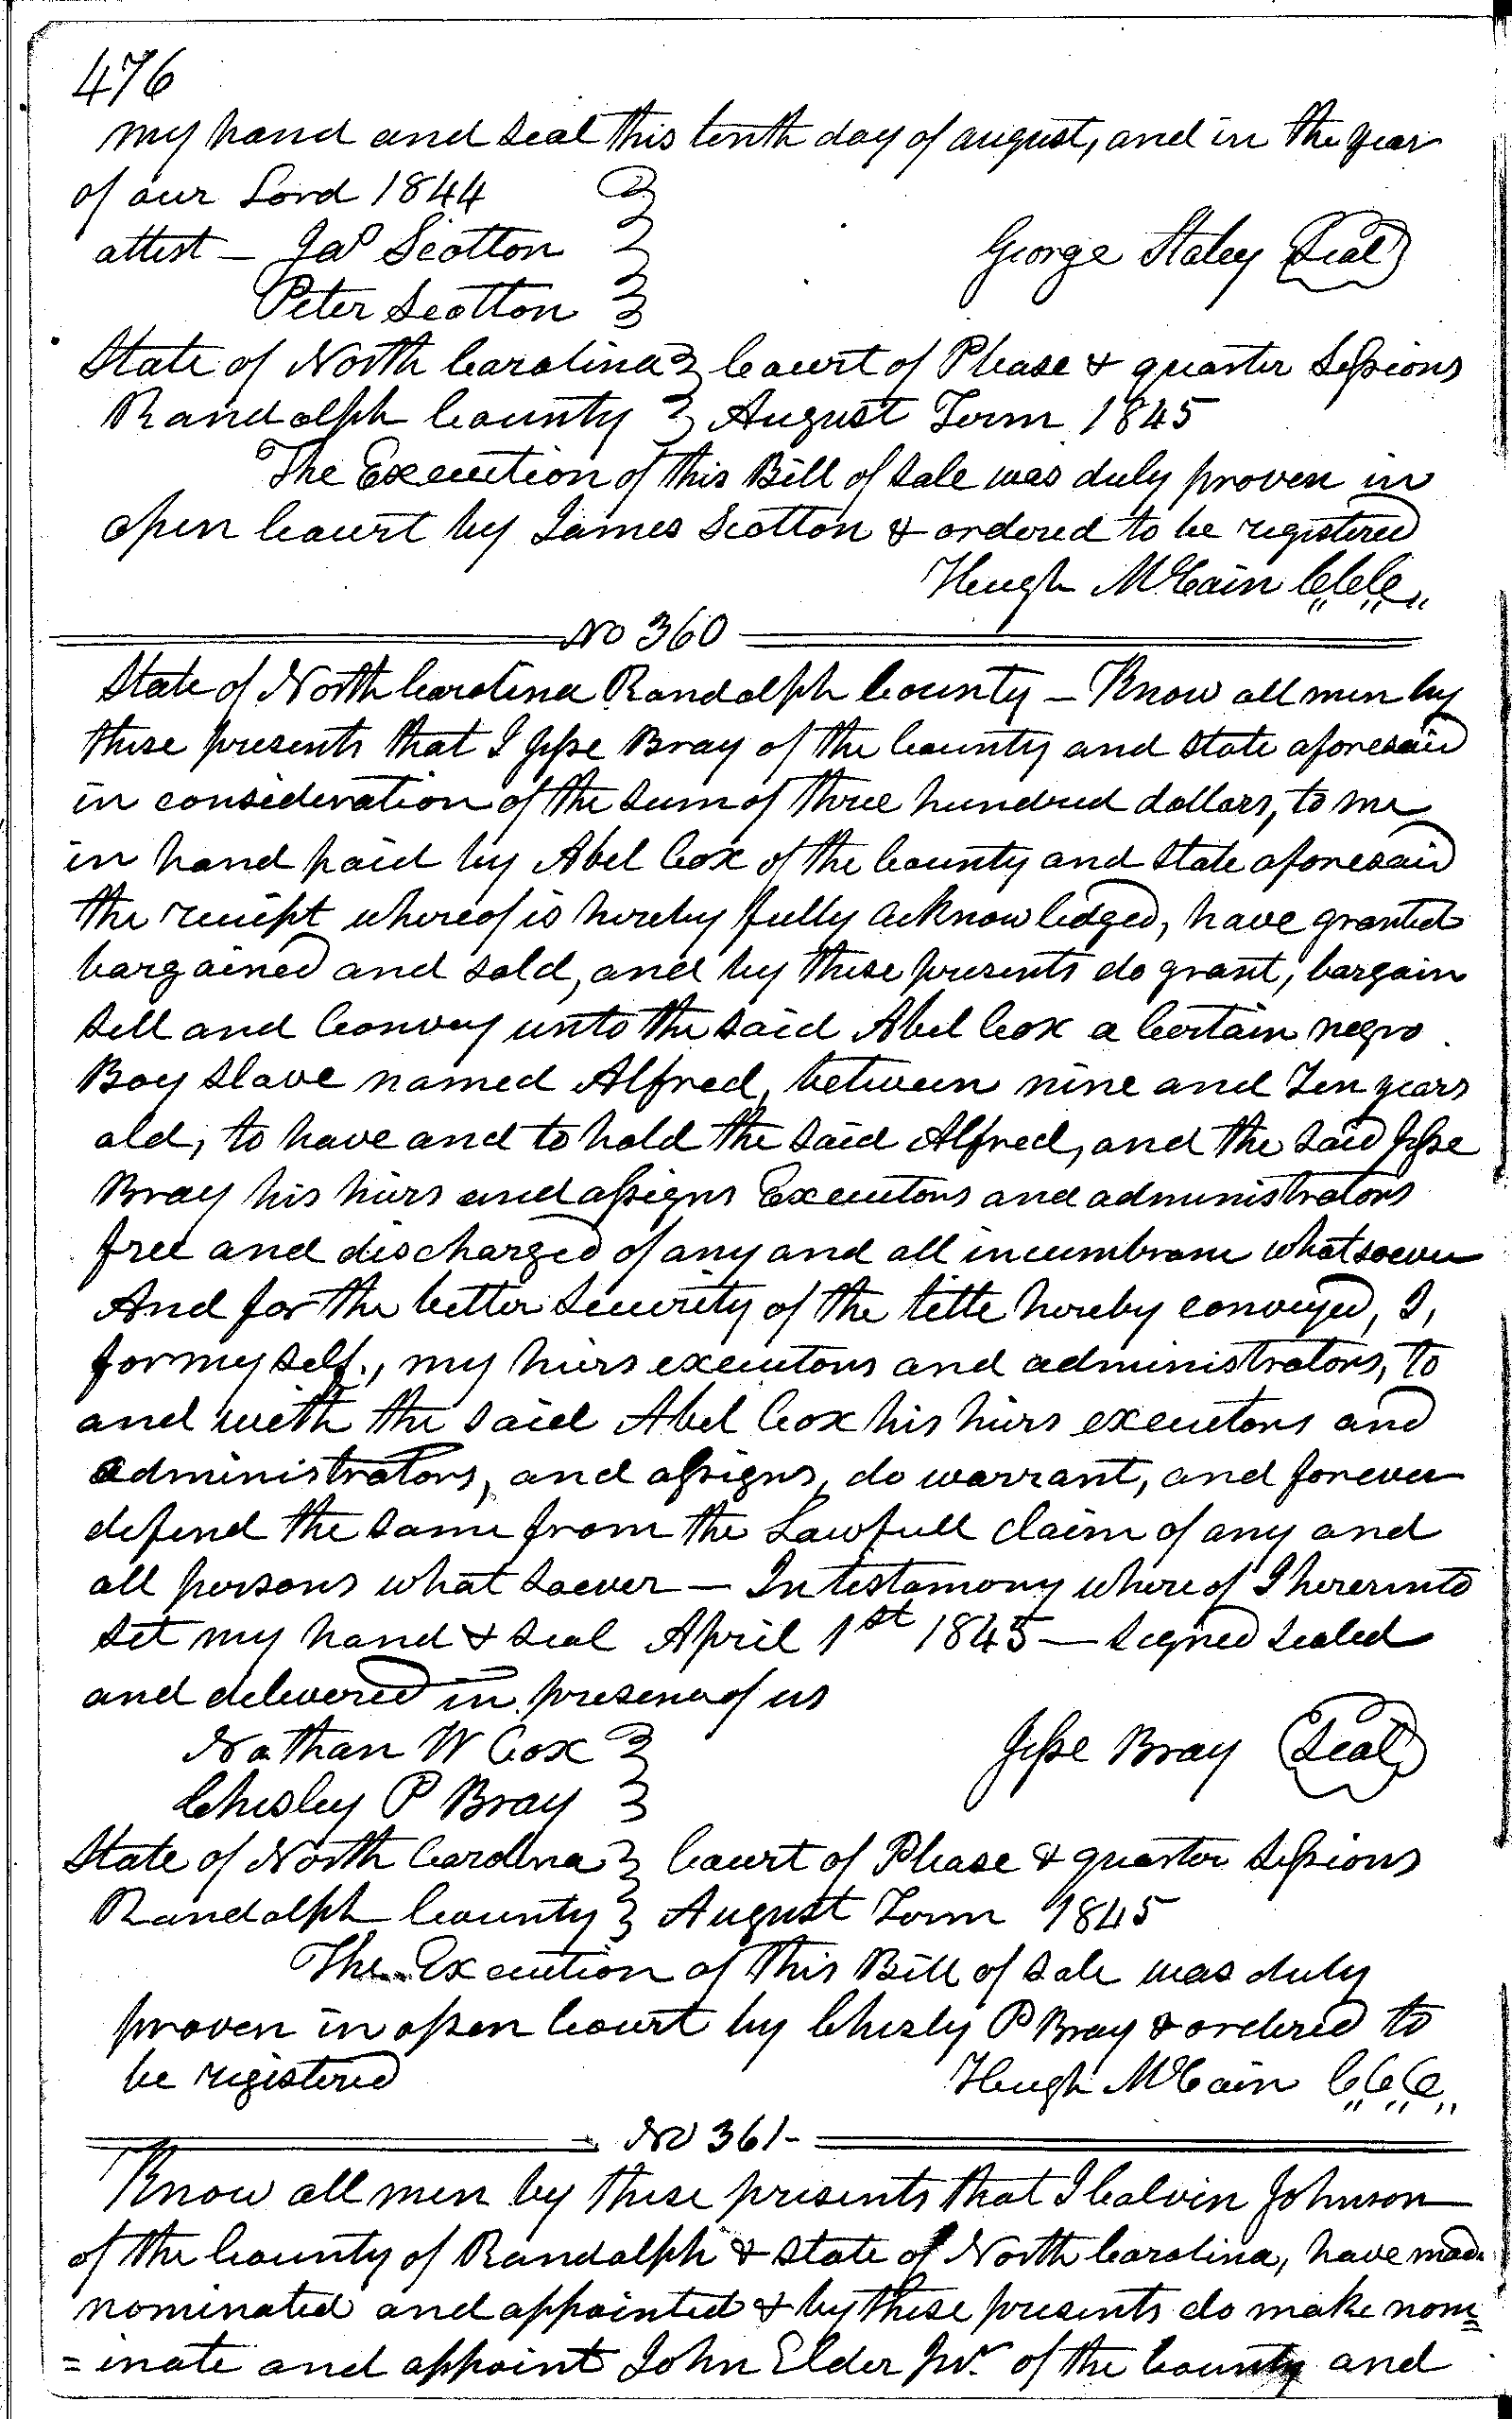 476
my hand and seal this tenth day of august, and in the year
of our Lord 1844
attest — Jas Scotton
George Staley Seal
Peter Scotton
State of North Carolina } Court of Please & quarter Sessions
Randolph County } August Term 1845
The Execution of this Bill of sale was duly proven in
open Court by James Scotton & ordered to be registered
Hugh McCain C.C.C.
No 360
State of North Carolina Randolph County — Know all men by
these presents that I Jesse Bray of the County and state aforesaid
in consideration of the sum of three hundred dollars, to me
in hand paid by Abel Cox of the County and state aforesaid
the receipt whereof is hereby fully acknowledged, have granted
bargained and sold, and by these presents do grant, bargain
sell and Convey unto the said Abel Cox a Certain negro
Boy slave named Alfred, between nine and Ten years
old, to have and to hold the said Alfred, and the said Jesse
Bray his hiers and assigns Executors and administrators
free and discharged of any and all incumbrance whatsoever
And for the better security of the title hereby conveyed, I,
for my self., my hiers executors and administrators, to
and with the said Abel Cox his hiers executors and
administrators, and assigns, do warrant, and forever
defend the same from the Lawfull claim of any and
all persons what soever — In testamony where of I hereunto
set my hand & seal April 1st 1845 — signed sealed
and delivered in presence of us
Nathan W Cox }
Jesse Bray Seal
Chesley P Bray }
State of North Carolina } Court of Please & quarter Sessions
Randolph County } August Term 1845
The Execution of this Bill of sale was duly
proven in open Court by Chesly P Bray & ordered to
be registered Hugh McCain C.C.C.
No 361-
Know all men by these presents that I Calvin Johnson
of the County of Randolph & state of North Carolina, have made
nominated and appointed & by these presents do make nom=
=inate and appoint John Elder Jur. of the County and